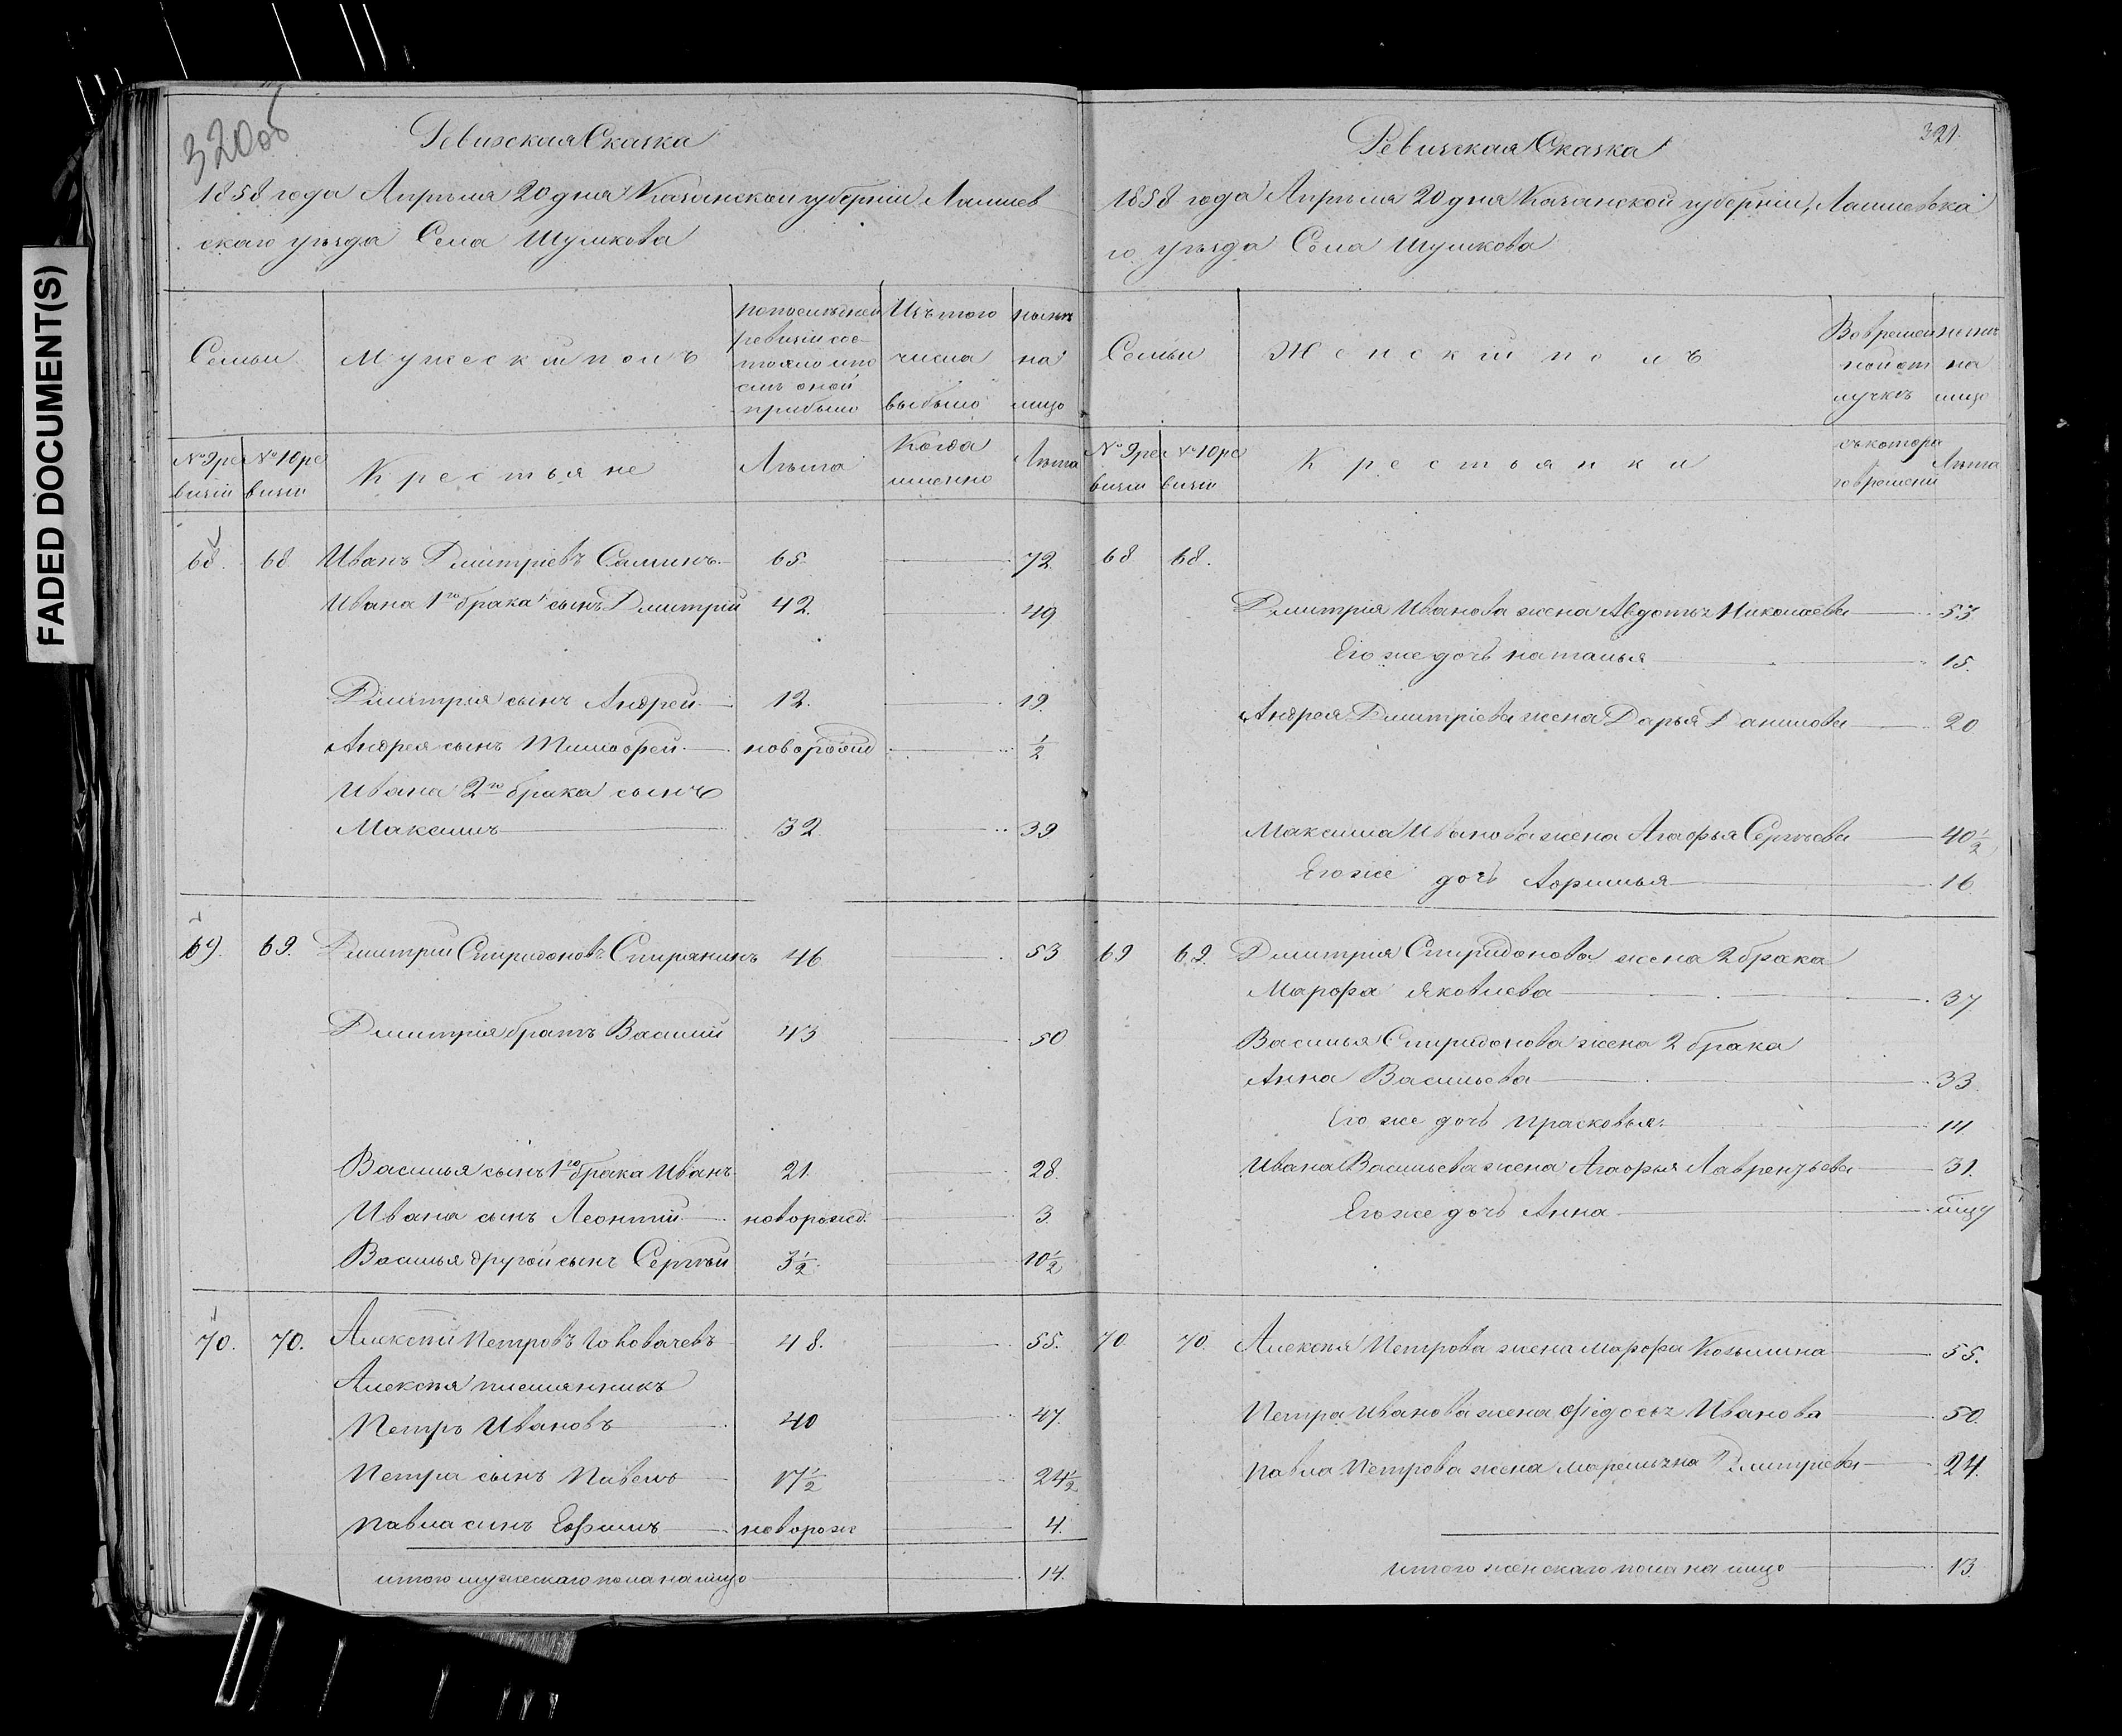 FADED DOCUMENT(S)
320об
Ревизская Сказка
1858 года Апрѣля 20 дня Казанской губерніи Лаишев
скаго уѣзда Села Шумкова
Семьи
Мужескій полъ
по послѣдней ревизіи состояло или послѣ оной прибыло
Изъ того числа выбыло
нынѣ на лицо
№ 9 ревизіи
№ 10 ревизіи
Крестьяне
Лѣта
Когда именно
Лѣта
68. 68 Иванъ Дмитріевъ Саминъ 65. 72.
Ивана 1го брака сынъ Дмитрій 42. 49
Дмитрія сынъ Андрей 12. 19.
Андрея сынъ Тимофей новорожд 1/2
Ивана 2го брака сынъ
Максимъ 32. 39
69. 69. Дмитрій Спиридоновъ 46 53
Дмитрія братъ Василій 43 50
Василья сынъ 1го брака Иванъ 21. 28.
Ивана сынъ Леонтій новорожд. 3.
Василья другой сынъ Сергѣй 3 1/2. 10 1/2
70. 70. Алексѣй Петровъ 48. 55.
Алексѣя племянникъ
Петръ Ивановъ 40 47.
Петра сынъ Павелъ 17 1/2 24 1/2
Павла сынъ Ефимъ новорож 4.
итого мужескаго пола на лицо 14.
321.
Ревизская Сказка
1858 года Апрѣля 20 дня Казанской губерніи, Лаишевска
го уѣзда Села Шумкова
Семьи
Женскій полъ
Во временной отлучкѣ
нынѣ на лицо
№ 9 рев визіи
№ 10 ре визіи
Крестьянки
съ котораго времени
Лѣта
68 68.
Дмитрія Иванова жена Авдотья Николаева 53
Его же дочь Наталья 15.
Андрея Дмитріева жена Дарья Данилова 20
Максима Иванова жена Агафья Сергѣева 40 1/2
Его же дочь 16.
69 69. Дмитрія Спиридонова жена 2 брака
Марфа Яковлева 37
Василья Спиридонова жена 2 брака
Анна Васильева 33.
Его же дочь Прасковья 14
Ивана Васильева жена Агафья Лаврентьева 31.
Его же дочь Анна
70. 70. Алексѣя Петрова жена Марфа Козьмина 55.
Петра Иванова жена Федосья Иванова 50.
Павла Петрова жена Дмитріева 24.
итого женскаго пола на лицо 13.